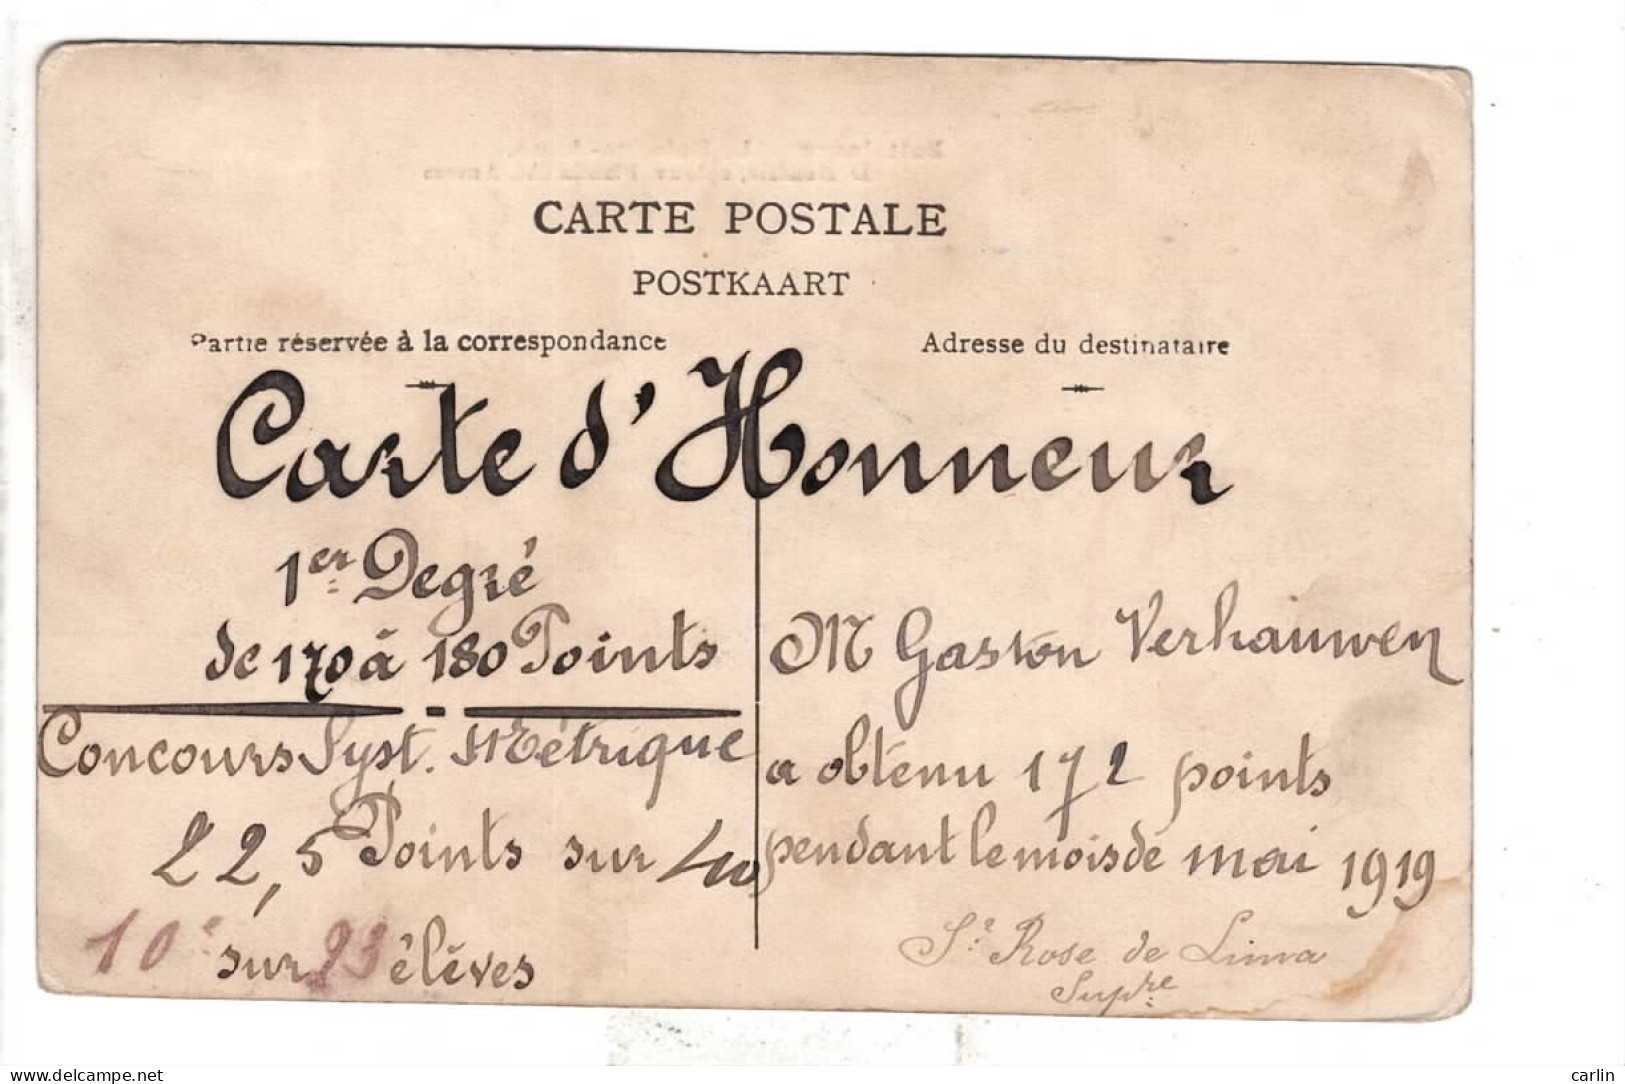 CARTE POSTALE
POSTKAART
Partie réservée à la correspondance
Adresse du destinataire
Carte d'Honneur
1er Degré
de 170 à 180 Points
Concours Syst. Métrique
22,5 Points sur 40
10e sur 23 élèves
M Gaston Verhauwen
a obtenu 172 points
pendant le mois de mai 1919
Sr Rose de Lima
Supre
www.delcampe.net
carlin